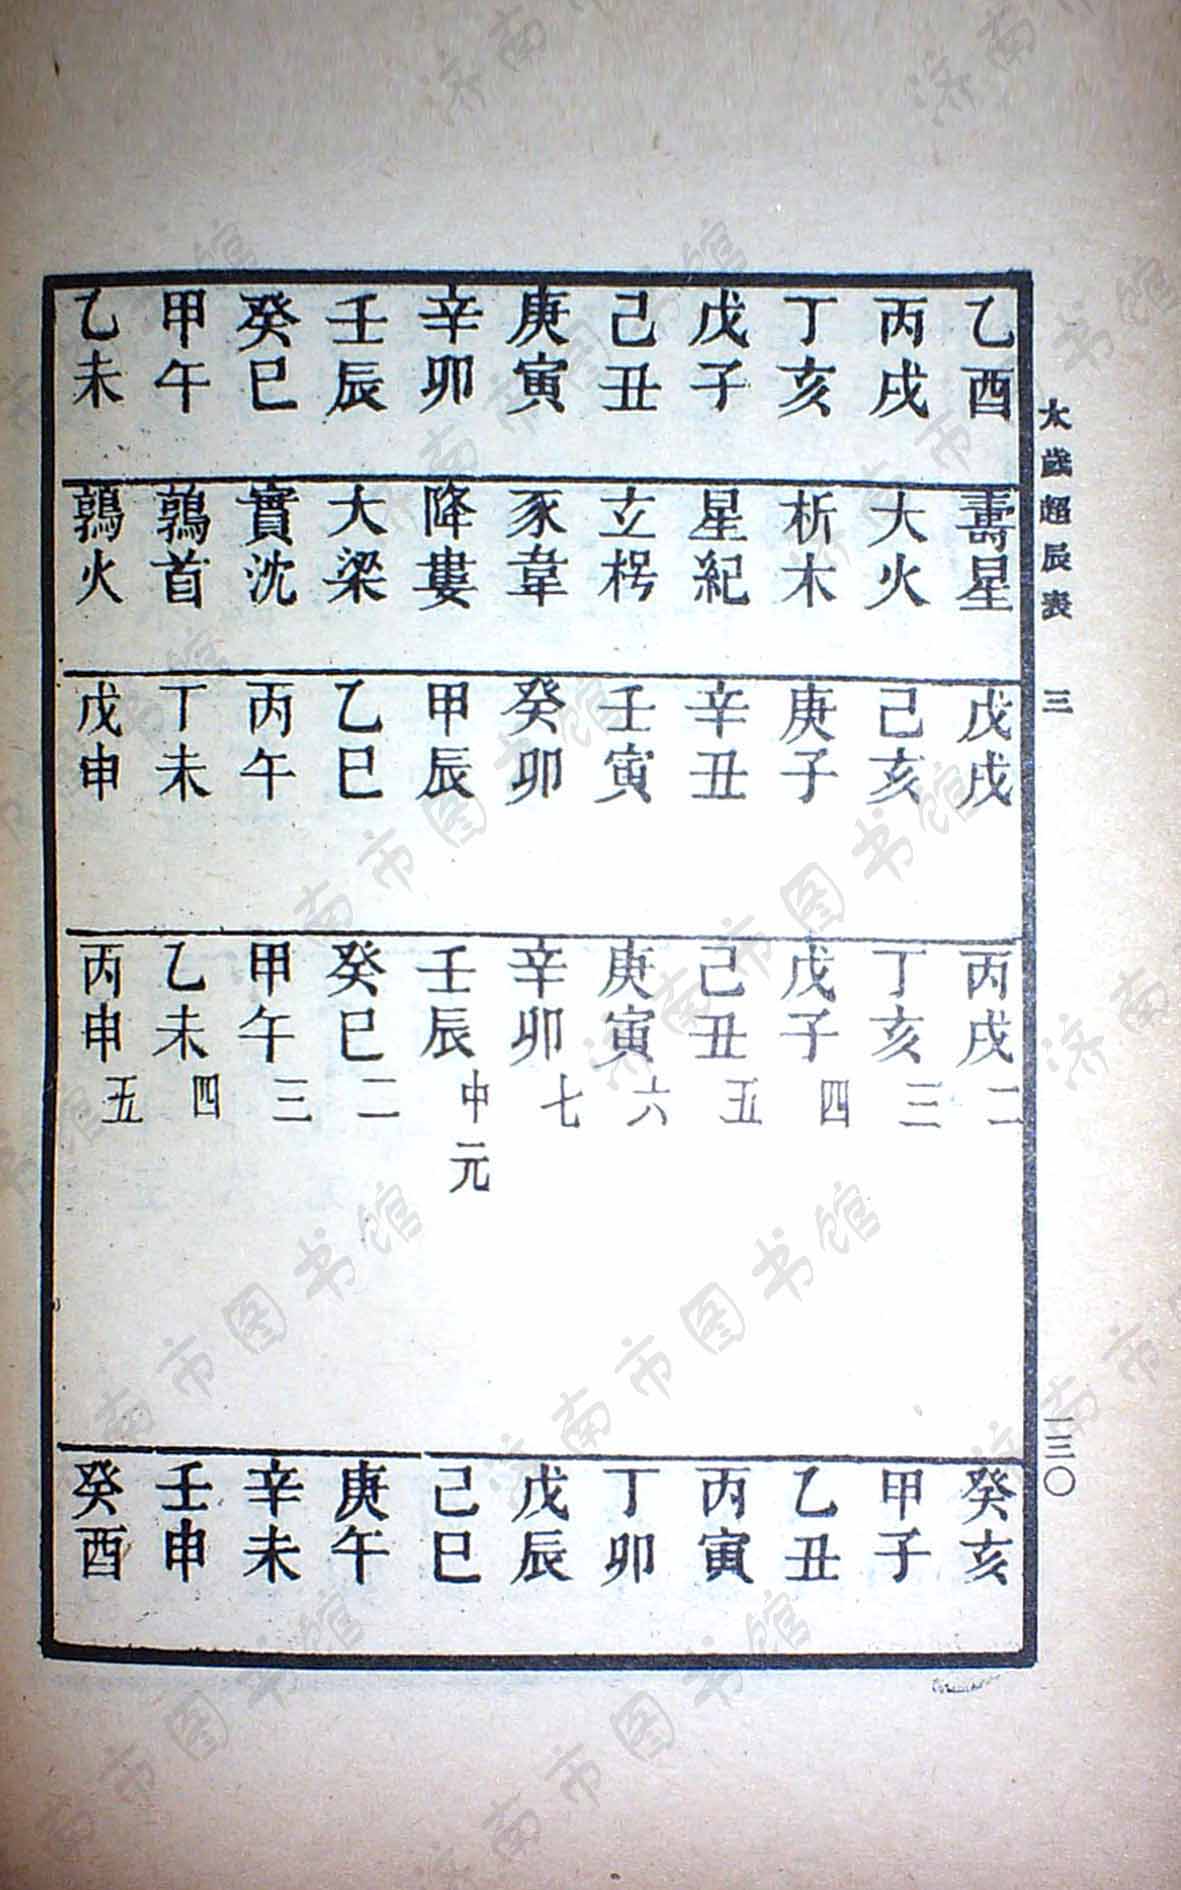 太歲超辰表 三 一三〇
乙酉 壽星 戊戌 丙戌二 癸亥
丙戌 大火 己亥 丁亥三 甲子
丁亥 析木 庚子 戊子四 乙丑
戊子 星紀 辛丑 己丑五 丙寅
己丑 立枵 壬寅 庚寅六 丁卯
庚寅 豕韋 癸卯 辛卯七 戊辰
辛卯 降婁 甲辰 壬辰中元 己巳
壬辰 大梁 乙巳 癸巳二 庚午
癸巳 實沈 丙午 甲午三 辛未
甲午 鶉首 丁未 乙未四 壬申
乙未 鶉火 戊申 丙申五 癸酉
济南市图书馆